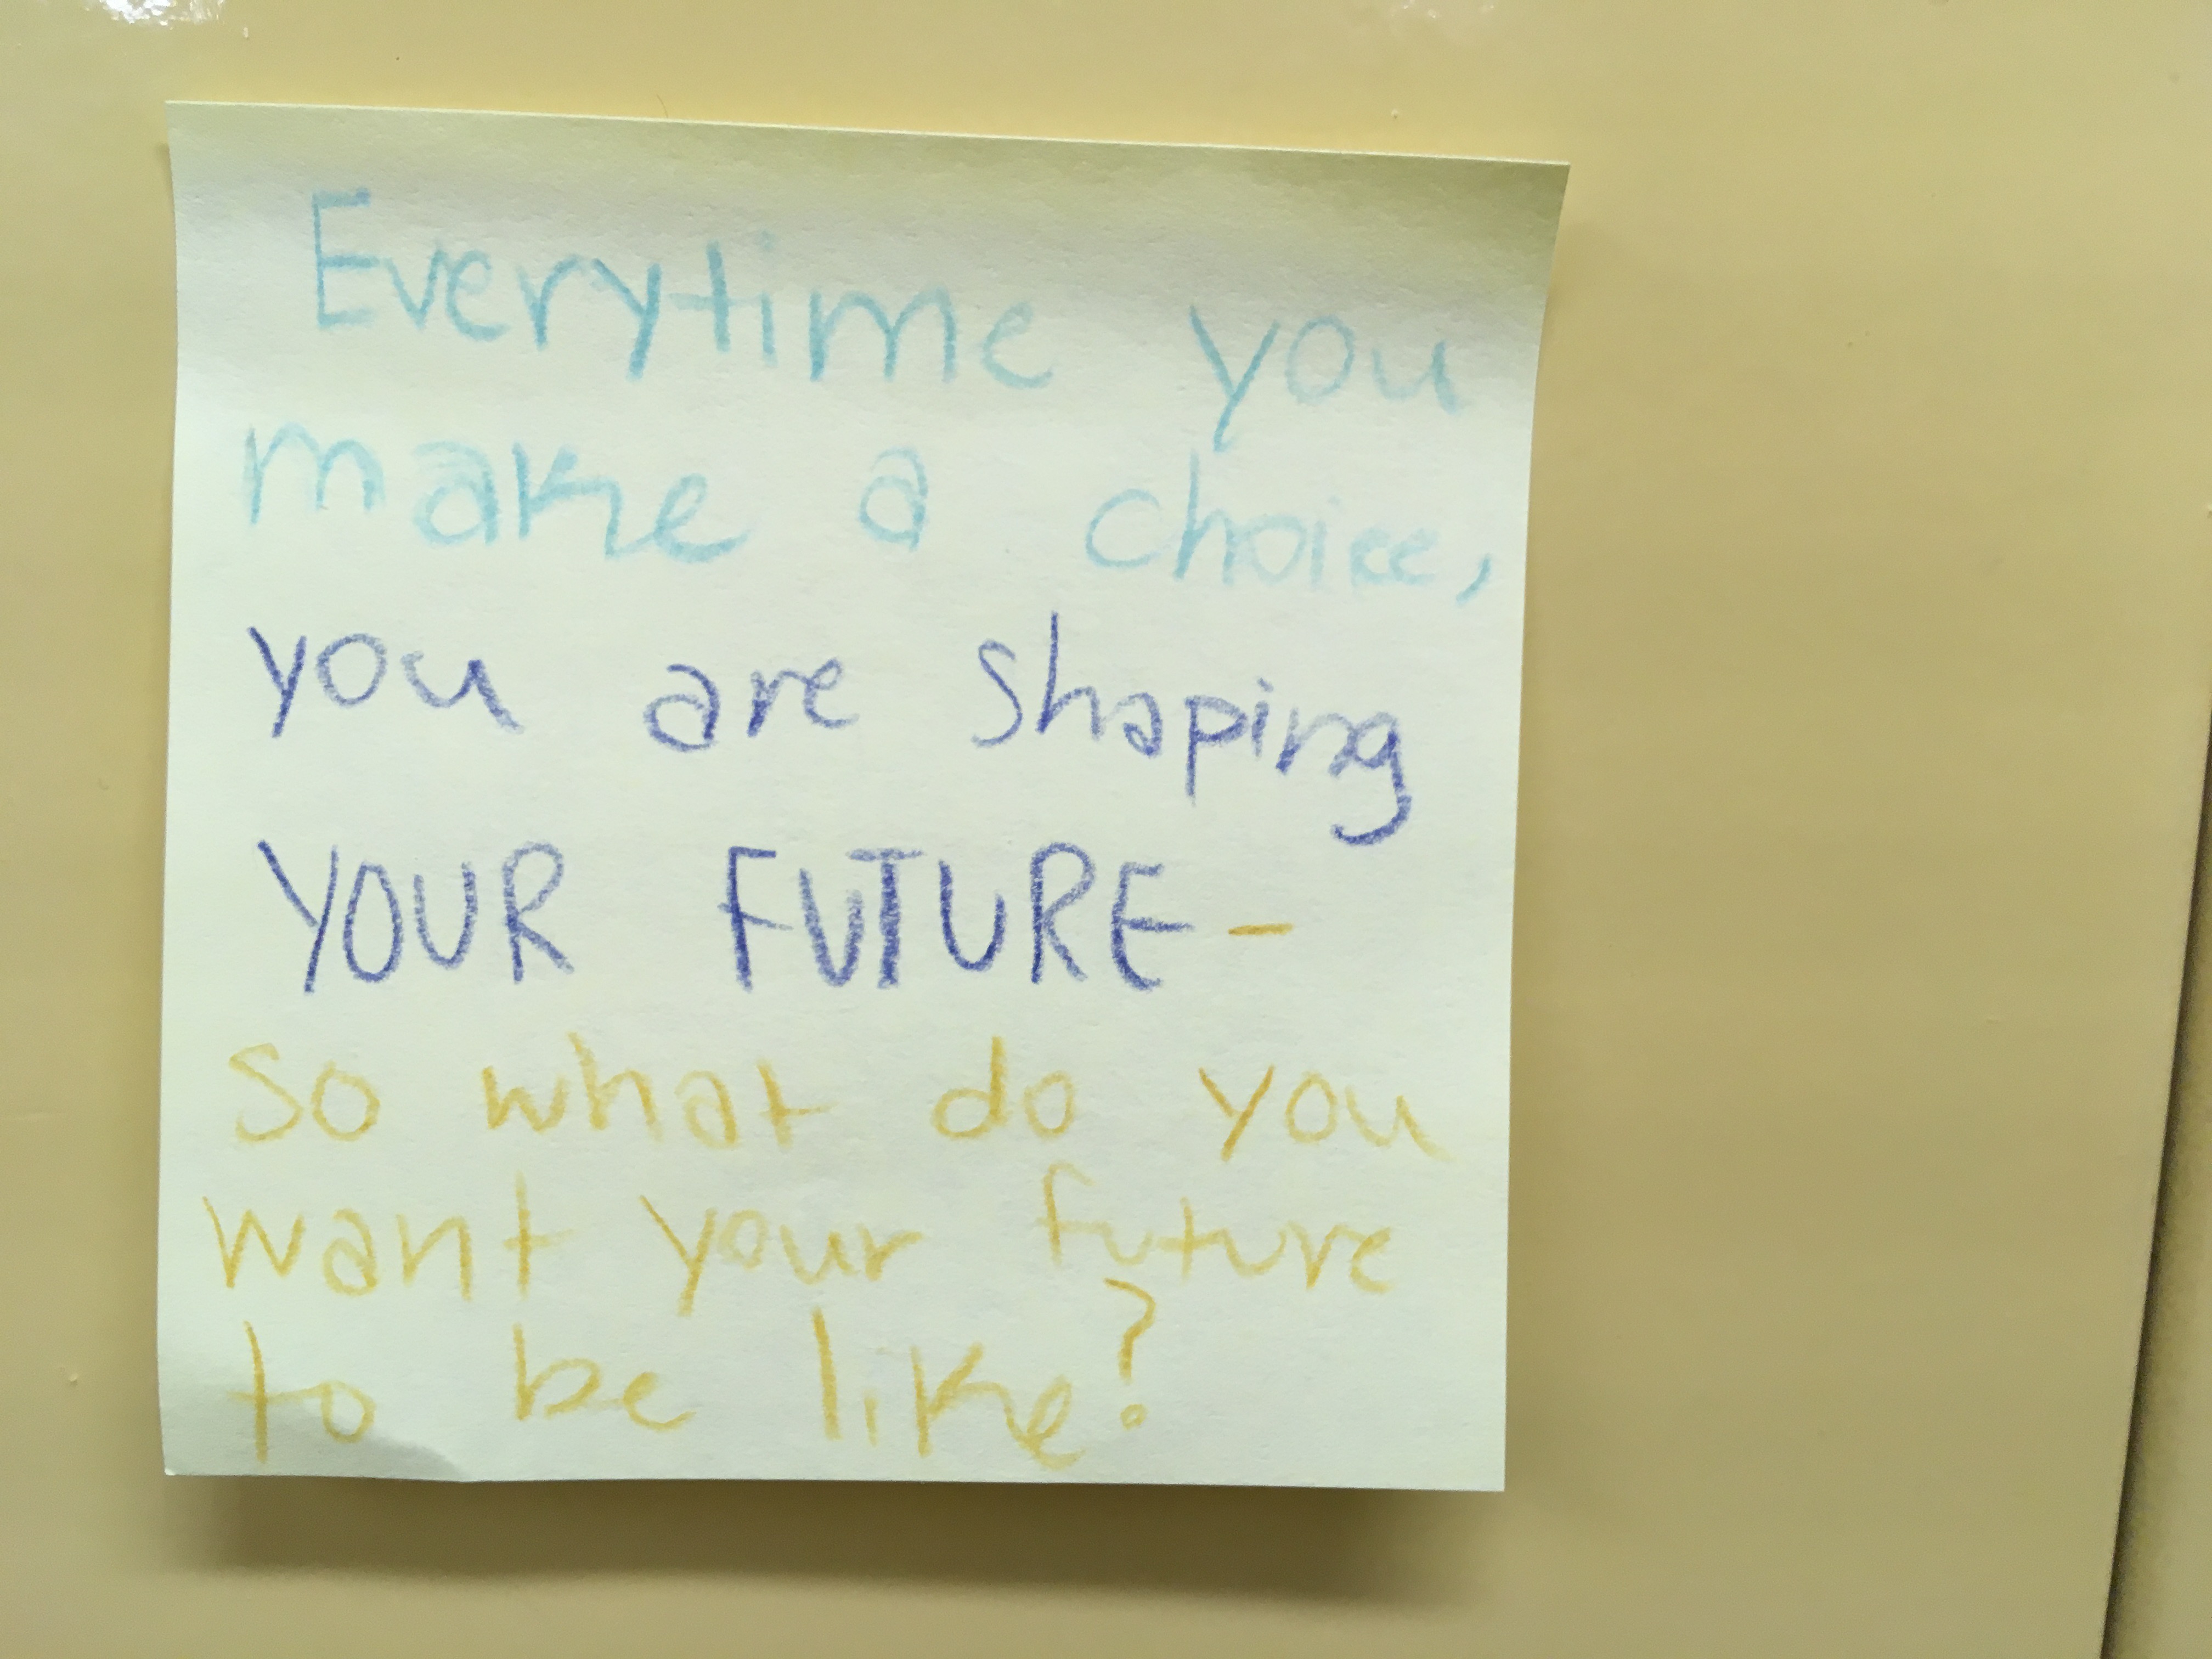 Everytime you
make a choice,
you are shaping
YOUR FUTURE-
so what do you
want your future
to be like?